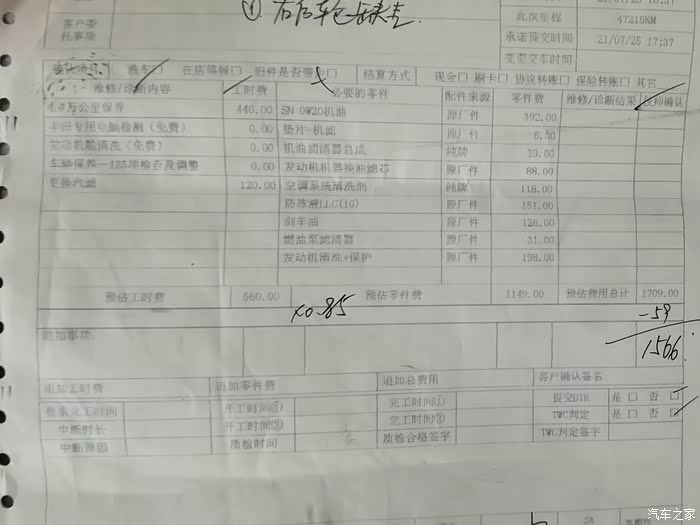 ① 右后车
21/07/25 16:37
客户委托事项
此次里程 47215KM
承诺预交时间 21/07/25 17:37
变更交车时间
确认项目 洗车□ 在店等候□ 旧件是否带□ 结算方式 现金□ 刷卡□ 协议转账□ 保险转账□ 其它
维修/诊断内容 工时费 必要的零件 配件来源 零件费 维修/诊断结果 技师确认
4.0万公里保养 440.00 SN 0W20机油 原厂件 392.00
丰田专用电脑检测(免费) 0.00 垫片-机滤 原厂件 6.00
发动机舱清洗(免费) 0.00 机油滤清器总成 纯牌 39.00
车辆保养-125项检查及调整 0.00 发动机机器换油滤芯 原厂件 88.00
更换汽滤 120.00 空调系统清洗剂 纯牌 118.00
防冻液LLC(1G) 原厂件 151.00
刹车油 原厂件 126.00
燃油泵滤清器 原厂件 31.00
发动机清洗+保护 原厂件 198.00
预估工时费 560.00 预估零件费 1149.00 预估费用总计 1709.00
×0.85 -59
追加事项: 1566
追加工时费 追加零件费 追加总费用 客户确认签名
重泵完工时间 开工时间① 完工时间① 提交DTR 是□ 否□
中断时长 开工时间② 完工时间② TWC判定 是□ 否□
中断原因 质检时间 质检合格签字 TWC判定签字
汽车之家